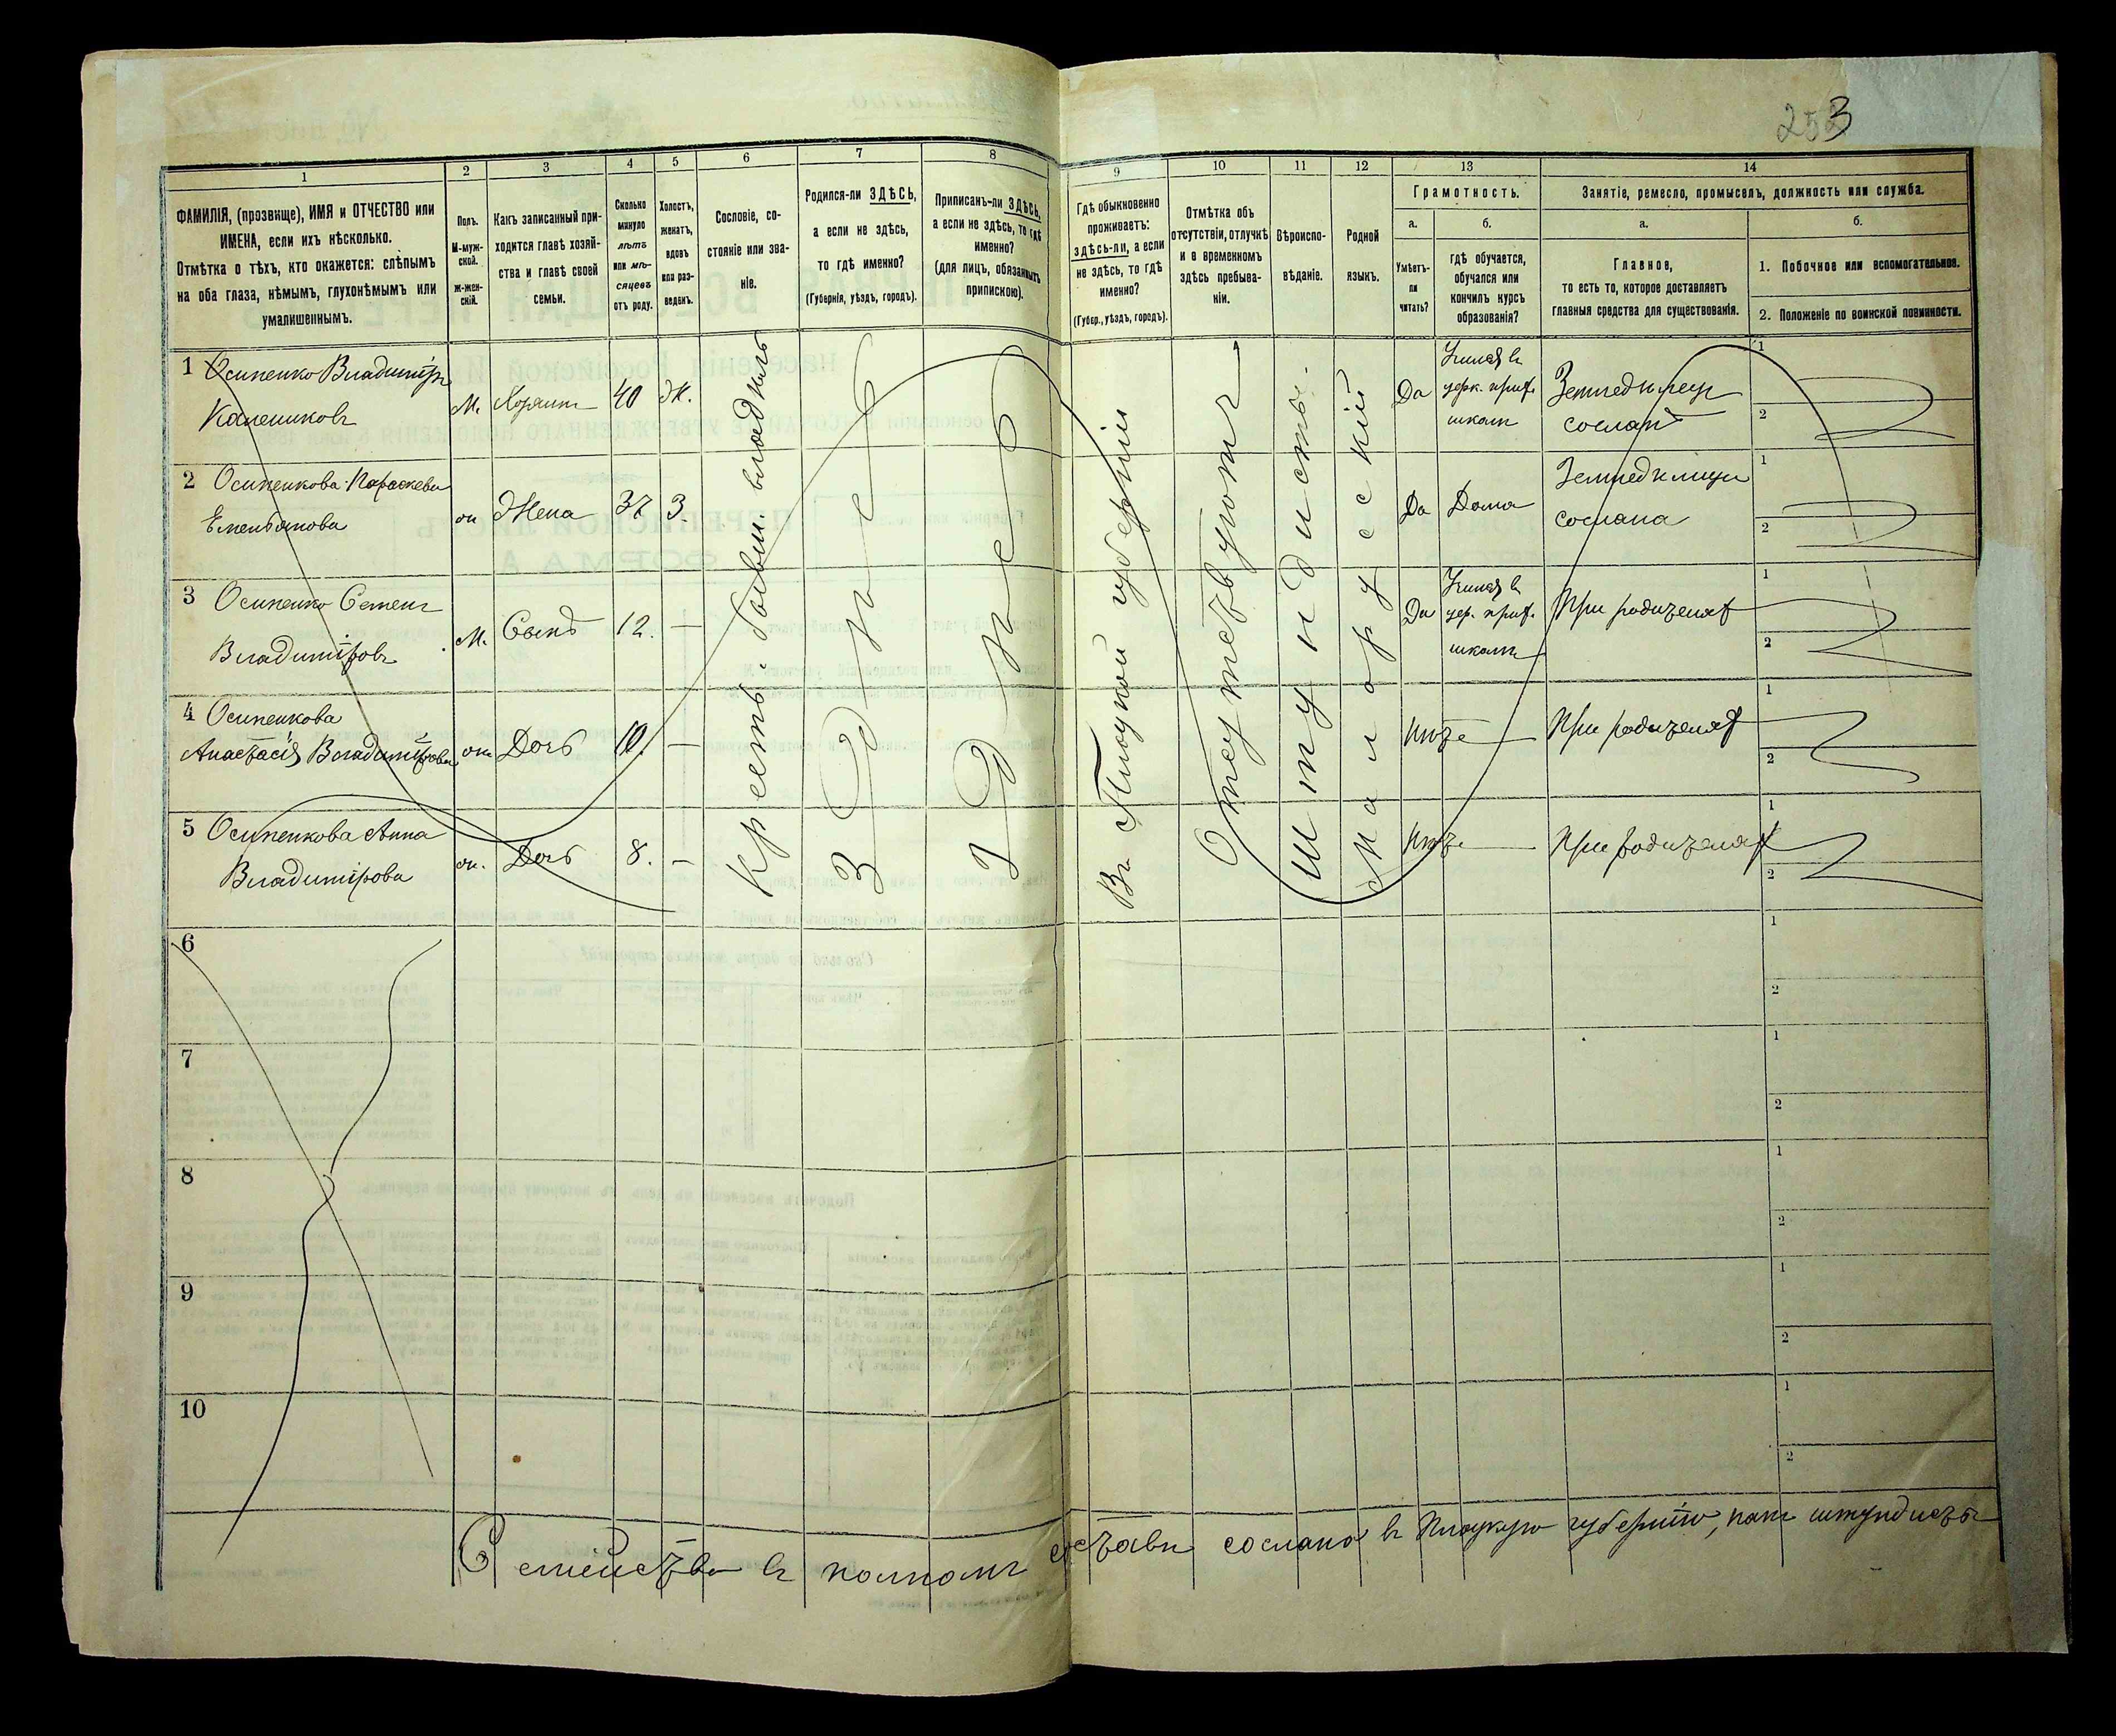 253
1
2
3
4
5
6
7
8
9
10
11
12
13
14
ФАМИЛІЯ, (прозвище), ИМЯ и ОТЧЕСТВО или
ИМЕНА, если ихъ нѣсколько.
Отмѣтка о тѣхъ, кто окажется: слѣпымъ
на оба глаза, нѣмымъ, глухонѣмымъ или
умалишеннымъ.
Полъ.
М-муж-
ской.
Ж-жен-
скій.
Какъ записанный при-
ходится главѣ хозяй-
ства и главѣ своей
семьи.
Сколько
минуло
лѣтъ
или мѣ-
сяцевъ
отъ роду.
Холостъ,
женатъ,
вдовъ
или раз-
веденъ.
Сословіе, со-
стояніе или зва-
ніе.
Родился-ли ЗДѢСЬ,
а если не здѣсь,
то гдѣ именно?
(Губернія, уѣздъ, городъ).
Приписанъ-ли ЗДѢСЬ,
а если не здѣсь, то гдѣ
именно?
(для лицъ, обязанныхъ
припискою).
Гдѣ обыкновенно
проживаетъ:
здѣсь-ли, а если
не здѣсь, то гдѣ
именно?
(Губер., уѣздъ, городъ).
Отмѣтка объ
отсутствіи, отлучкѣ
и о временномъ
здѣсь пребыва-
ніи.
Вѣроиспо-
вѣданіе.
Родной
языкъ.
Грамотность.
а.
Умѣетъ-
ли
читать?
б.
гдѣ обучается,
обучался или
кончилъ курсъ
образованія?
Занятіе, ремесло, промыселъ, должность или служба.
а.
Главное,
то есть то, которое доставляетъ
главныя средства для существованія.
б.
1. Побочное или вспомогательное.
2. Положеніе по воинской повинности.
1 Осипенко Владиміръ
М. Хозяинъ 40 Ж. Да
Учился въ
церк. прих.
школѣ
Земледѣлецъ
сосланъ
1
2
2 Осипенкова Параскева
Емельянова
ж Жена 37 З. Да Дома
Земледѣлица
сослана
1
2
3 Осипенко Семенъ
Владиміровъ
М. Сынъ 12. — Да
Учился въ
цер. прих.
школѣ
При родителяхъ
1
2
4 Осипенкова
Анастасія Владимірова
ж. Дочь 10. — Нѣтъ При родителяхъ
1
2
5 Осипенкова Анна
Владимірова
ж. Дочь 8. — Нѣтъ При родителяхъ
1
2
Крестьян. бывш. владѣлъ
Здѣсь
Здѣсь
Въ Плоцкой губерніи
Отсутствуютъ
Штундисты.
Малорусскій
6
1
2
7
1
2
8
1
2
9
1
2
10
1
2
Семейство въ полномъ составѣ сослано въ Плоцкую губернію, какъ штундисты